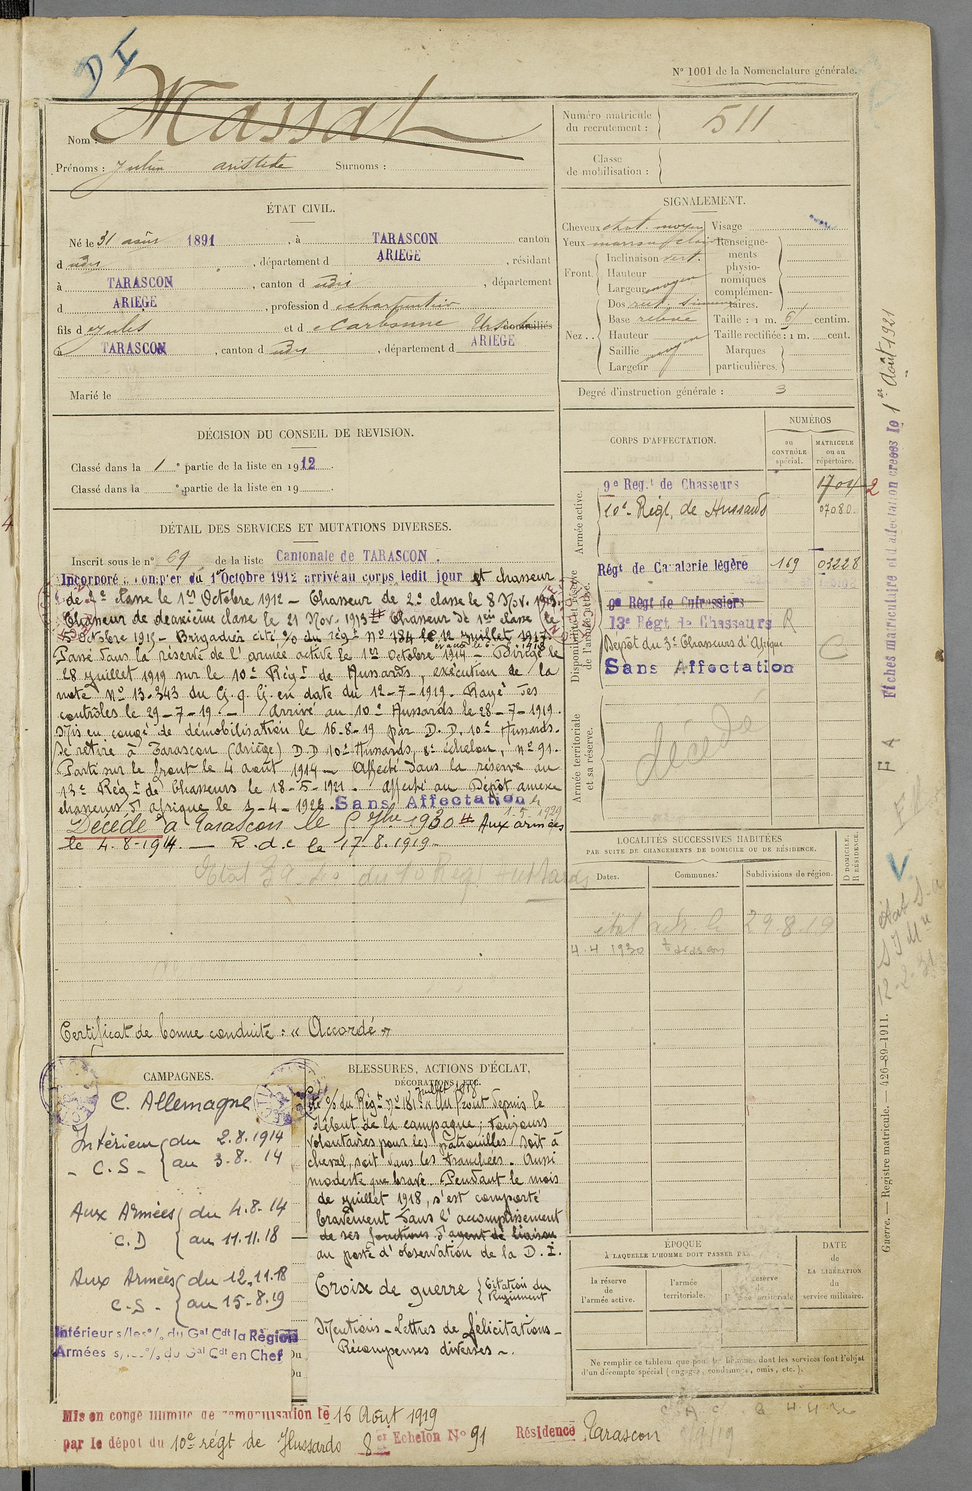 D F
N° 1001 de la Nomenclature générale.
Nom : Massat
Prénoms : Julien aristide Surnoms :
Numéro matricule du recrutement : 511
Classe de mobilisation :
ÉTAT CIVIL.
Né le 31 août 1891, à TARASCON canton
d udis, département d ARIEGE, résidant
à TARASCON, canton d udis, département
d ARIEGE, profession d charpentier
fils d Jules et d Carbonne domiciliés
à TARASCON, canton d udis, département d ARIEGE
Marié le
SIGNALEMENT.
Cheveux chat. moyen Visage
Yeux marron clair Renseignements physionomiques complémentaires.
Front Inclinaison vert.
Hauteur
Largeur moyen
Dos rect.
Nez Base relevée Taille : 1 m. 61 centim.
Hauteur Taille rectifiée : 1 m. cent.
Saillie moyen Marques
Largeur particulières.
Degré d'instruction générale : 3
DÉCISION DU CONSEIL DE REVISION.
Classé dans la 1e partie de la liste en 1912.
Classé dans la e partie de la liste en 19
DÉTAIL DES SERVICES ET MUTATIONS DIVERSES.
Inscrit sous le n° 69 de la liste Cantonale de TARASCON.
Incorporé à compter du 1er Octobre 1912 arrivé au corps ledit jour et chasseur
de 2e classe le 1er Octobre 1912 – Chasseur de 2e classe le 8 Nov. 1913.
Chasseur de deuxième classe le 21 Nov. 1913 Chasseur de 1ère classe le
5 Octobre 1915 – Brigadier cité % du régt N° 184 le 12 juillet 1917.
Passé dans la réserve de l'armée active le 1er Octobre 1914 – Dirigé le
28 juillet 1919 sur le 10e Régt de Hussards, exécution de la
note N° 13.343 du G.Q.G. en date du 12-7-1919. Rayé des
contrôles le 29-7-19 – Arrivé au 10e Hussards le 28-7-1919.
Mis en congé de démobilisation le 16-8-19 par D.D. 10e Hussards.
Se retire à Tarascon (Ariège) D.D 10e Hussards, 8e échelon, N° 91.
Parti sur le front le 4 août 1914 – Affecté dans la réserve au
13e Régt de Chasseurs le 18-5-1921 – Affecté au Dépôt annexe
chasseurs d'Afrique le Sans Affectation
Décédé à Tarascon le 1930 Aux armées
le 4.8.1914. – R.d.c le 17.8.1919 –
Certificat de bonne conduite : « Accordé »
CORPS D'AFFECTATION.
NUMÉROS
au CONTRÔLE spécial.
MATRICULE ou au répertoire.
Armée active.
9e Régt de Chasseurs 1704
10e Régt de Hussards 07080
Disponibilité et réserve de l'armée active.
Régt de Cavalerie légère 169 03228
9e Régt de Cuirassiers
13e Régt de Chasseurs R
Dépôt du 3e Chasseurs d'Afrique C
Sans Affectation
Armée territoriale et sa réserve.
décédé
Fiches matriculaire et d'affectation créées le 1er Août 1921
LOCALITÉS SUCCESSIVES HABITÉES
PAR SUITE DE CHANGEMENTS DE DOMICILE OU DE RÉSIDENCE.
Dates. Communes. Subdivisions de région. D DOMICILE. R RÉSIDENCE.
29.8.19
4.4 1930 Tarascon
CAMPAGNES.
C. Allemagne
Intérieur du 2.8.1914
– C.S – au 3.8.14
Aux Armées du 4.8.14
C.D au 11.11.18
Aux Armées du 12.11.18
C.S. au 15.8.19
Intérieur s/les % du Gal Cdt la Région
Armées s/les % du Gal Cdt en Chef
BLESSURES, ACTIONS D'ÉCLAT, DÉCORATIONS, ETC.
Cité % du Régt N° 181 « Au front depuis le
début de la campagne ; toujours
volontaires pour les patrouilles soit à
cheval, soit dans les tranchées. Aussi
modeste que brave. Pendant le mois
de juillet 1918, s'est comporté
bravement dans l'accomplissement
de ses fonctions d'agent de liaison
au poste d'observation de la D.I.
Croix de guerre Citation du Régiment
Mentions – Lettres de félicitations –
Récompenses diverses –
ÉPOQUE
À LAQUELLE L'HOMME DOIT PASSER DANS
la réserve de l'armée active.
l'armée territoriale.
DATE de LA LIBÉRATION du service militaire.
Ne remplir ce tableau que pour les hommes dont les services font l'objet
d'un décompte spécial (engagés, condamnés, omis, etc.).
Guerre. — Registre matricule. — 426-89-1911.
Mis en congé illimité de démobilisation le 16 Août 1919
par le dépôt du 10e régt de Hussards 8e Echelon N° 91 Résidence Tarascon